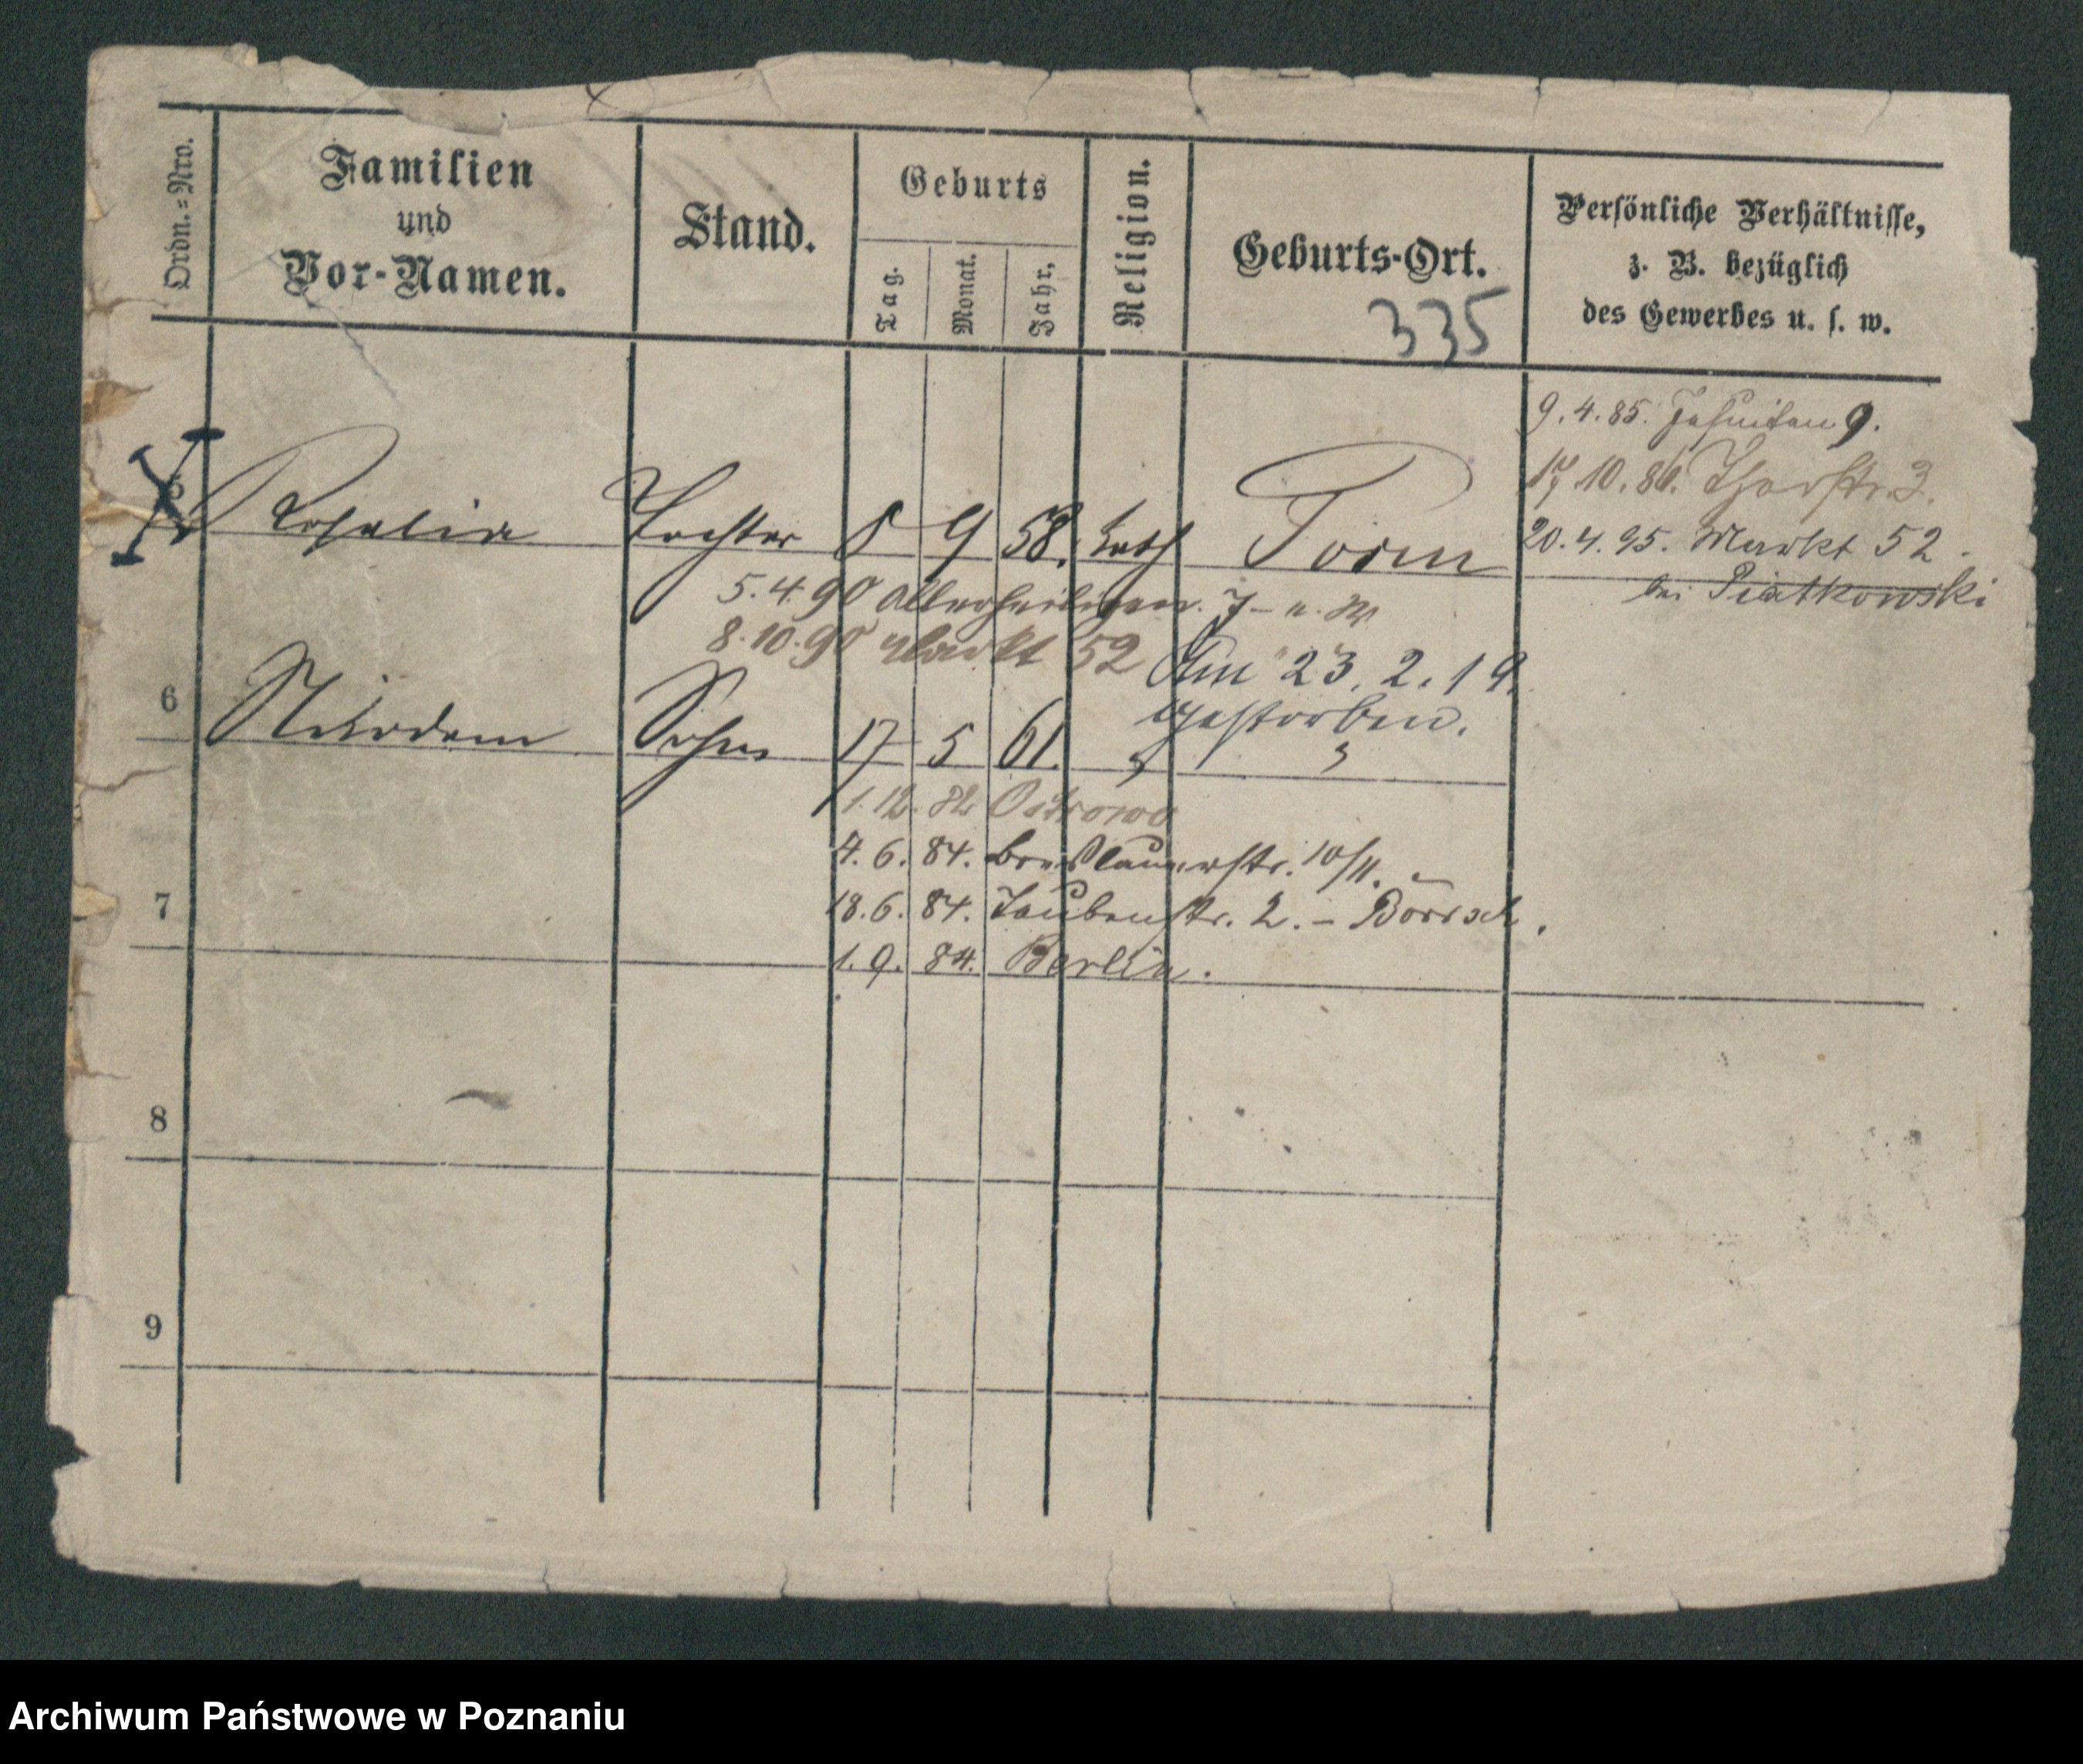 Ordn.=Nro.
Familien
und
Vor-Namen.
Stand.
Geburts
Tag.
Monat.
Jahr.
Religion.
Geburts-Ort.
Persönliche Verhältnisse,
z. B. bezüglich
des Gewerbes u. s. w.
335
9. 4. 85. Jesuiten 9.
17.10.86. Thorstr 3.
5 Rosalia Tochter 8 9 58. kath Posen
20.4.95. Markt 52.
bei Piatkowski
5.4.90 Allerheiligen
8.10.90 Markt 52
Am 23. 2. 19.
gestorben.
6 Sohn 17 5 61.
1.12. 82 Ostrowo
4. 6. 84. Breslauerstr. 10/11.
7
18. 6. 84. Taubenstr. 2. –
1. 9. 84. Berlin.
8
9
Archiwum Państwowe w Poznaniu